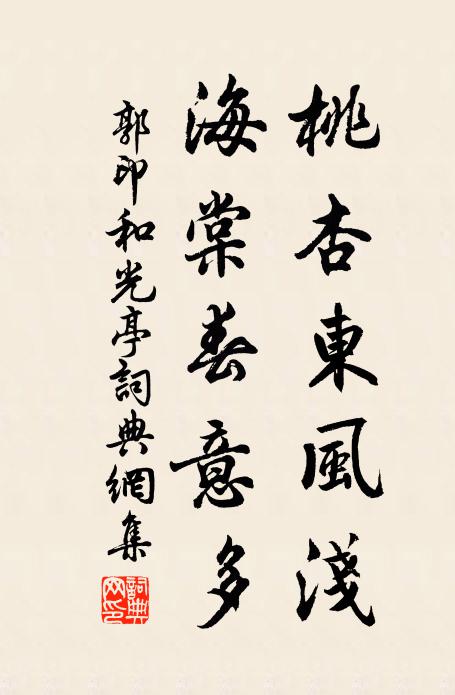 桃杏東風淺
海棠春意多
郭印和光亭詞典網集
詞典
网印